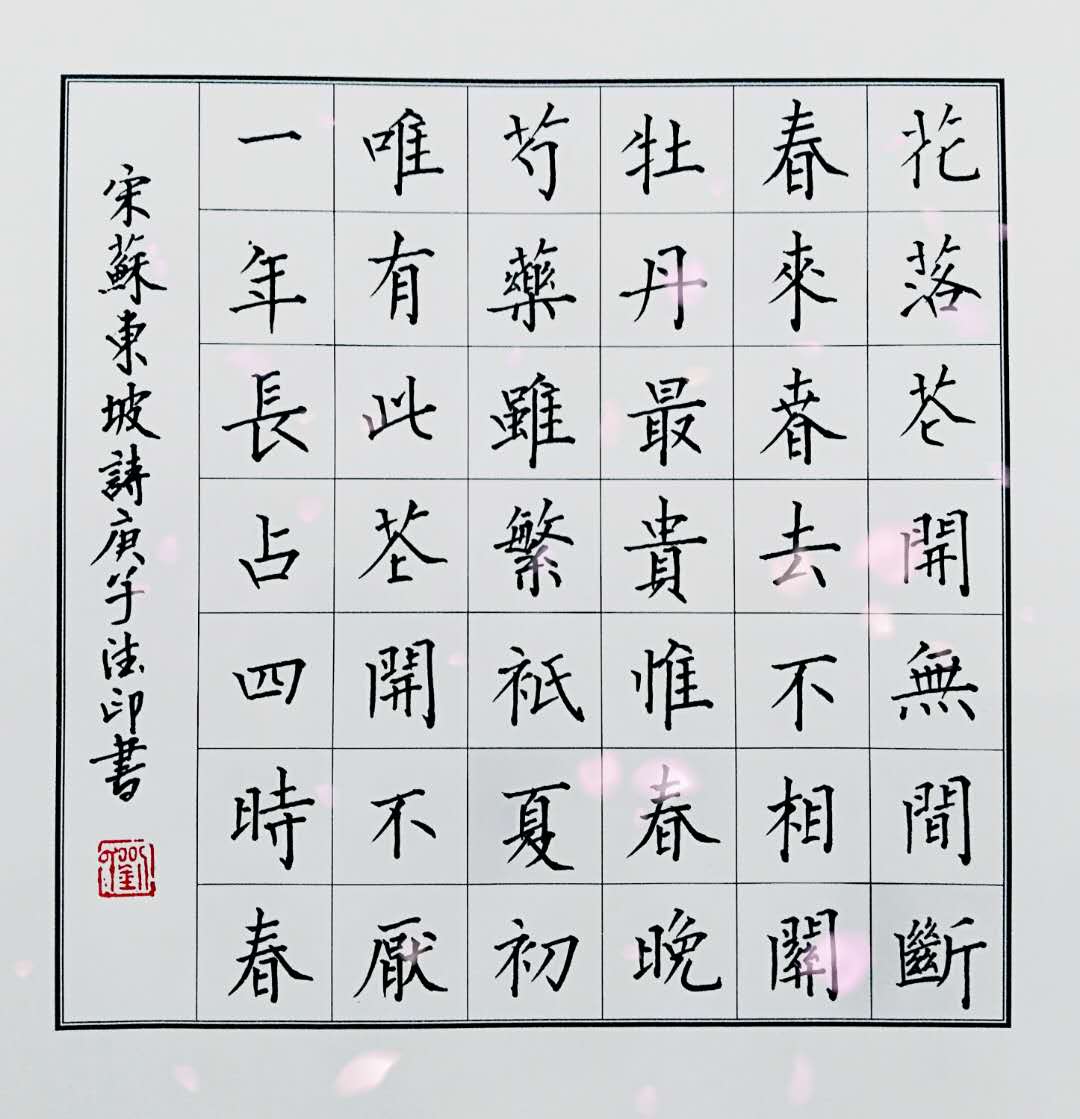 花落花開無間斷
春來春去不相關
牡丹最貴惟春晚
芍藥雖繁衹夏初
唯有此花開不厭
一年長占四時春
宋蘇東坡詩庚子法印書
劉